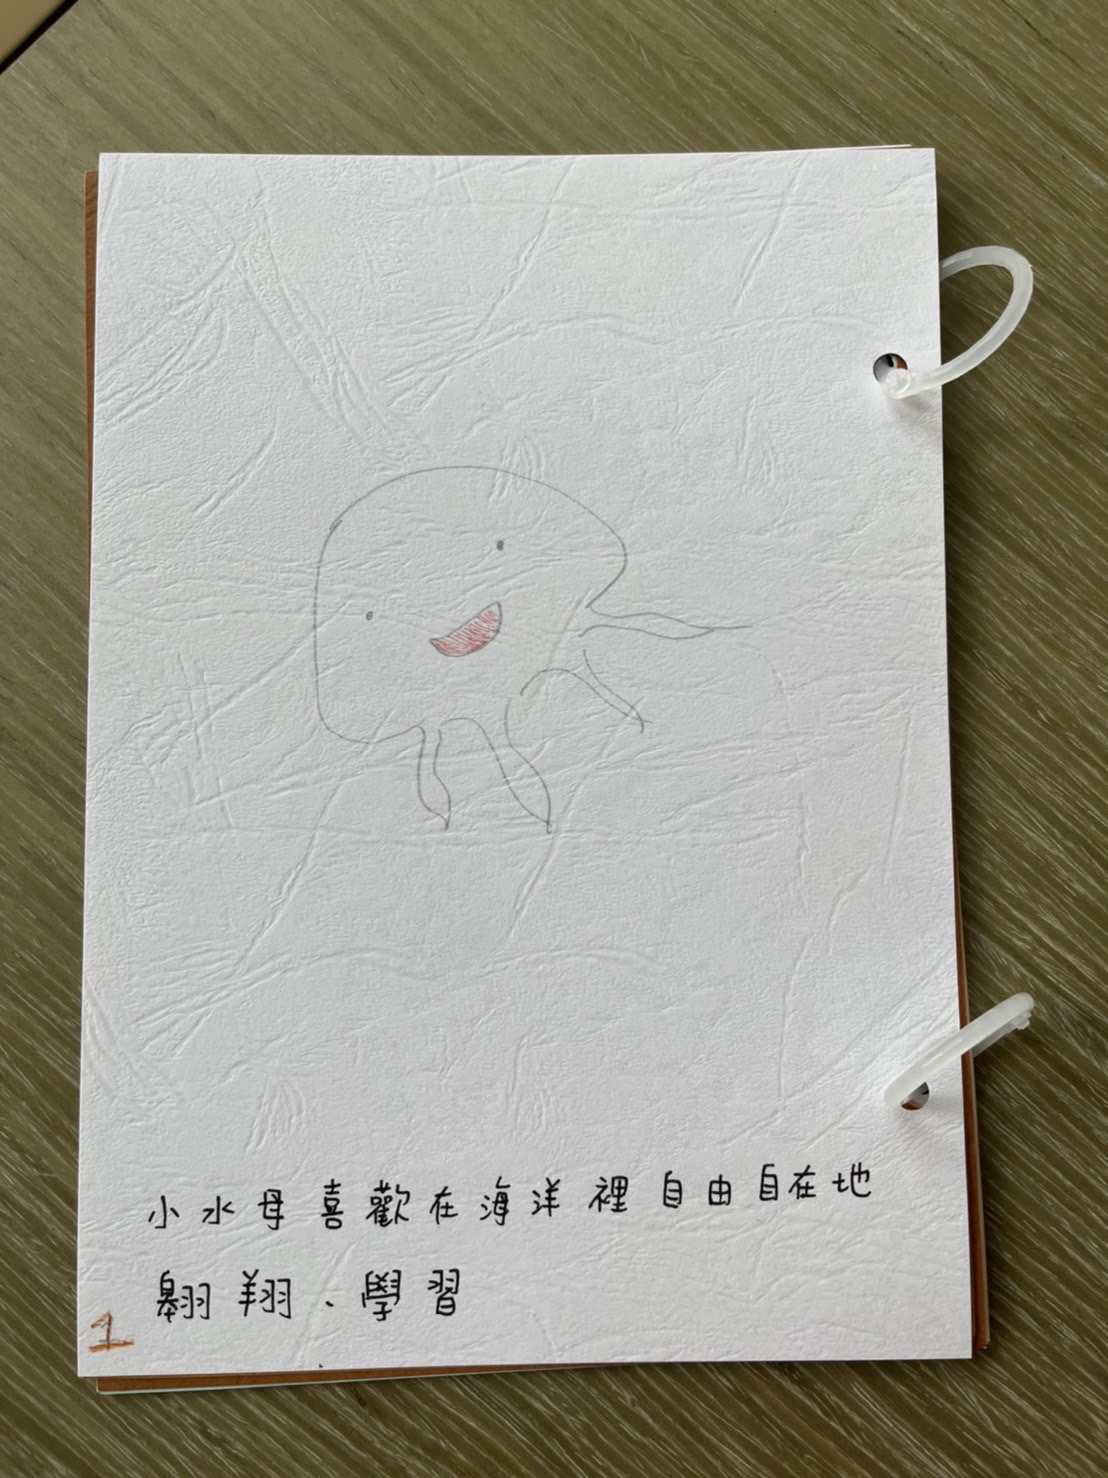 小水母喜歡在海洋裡自由自在地
翱翔、學習
1